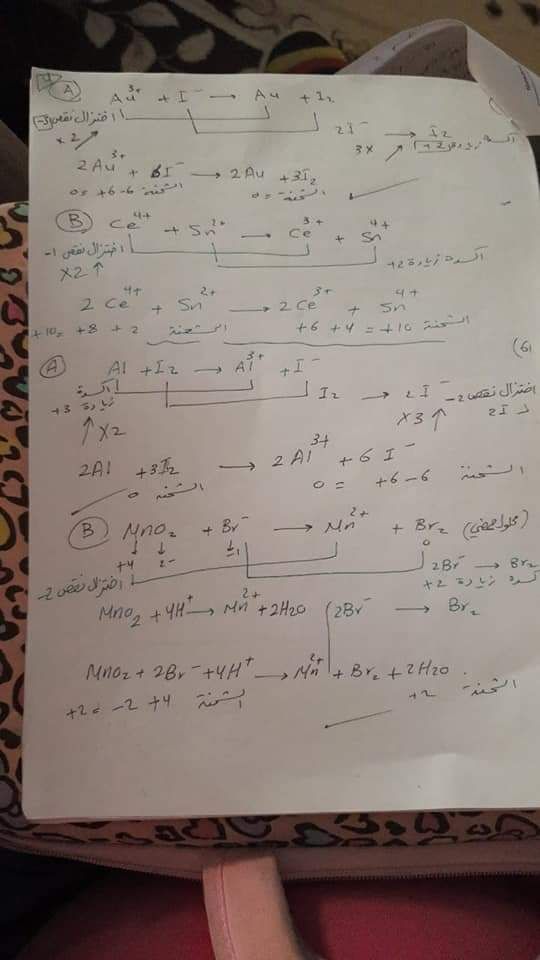 4
A Au³⁺ + I⁻ → Au + I₂
اختزال نقص -3
×2
2I⁻ → I₂
3×
أكسدة زيادة +2
2Au³⁺ + 6I⁻ → 2Au + 3I₂
0 = +6-6 الشحنة
0 = الشحنة
B Ce⁴⁺ + Sn²⁺ → Ce³⁺ + Sn⁴⁺
اختزال نقص -1
×2
أكسدة زيادة +2
2Ce⁴⁺ + Sn²⁺ → 2Ce³⁺ + Sn⁴⁺
+10 = +8 + 2 الشحنة
+6 + 4 = +10 الشحنة
(6
A Al + I₂ → Al³⁺ + I⁻
أكسدة زيادة +3
×2
I₂ → 2I⁻
اختزال نقص -2
×3
2I
2Al + 3I₂ → 2Al³⁺ + 6I⁻
0 الشحنة
0 = +6-6 الشحنة
B MnO₂ + Br⁻ → Mn²⁺ + Br₂ (محلول حمضي)
+4 2- -1 0
اختزال نقص -2
2Br⁻ → Br₂
أكسدة زيادة +2
MnO₂ + 4H⁺ → Mn²⁺ + 2H₂O
2Br⁻ → Br₂
MnO₂ + 2Br⁻ + 4H⁺ → Mn²⁺ + Br₂ + 2H₂O
+2 = -2 +4 الشحنة
+2 الشحنة